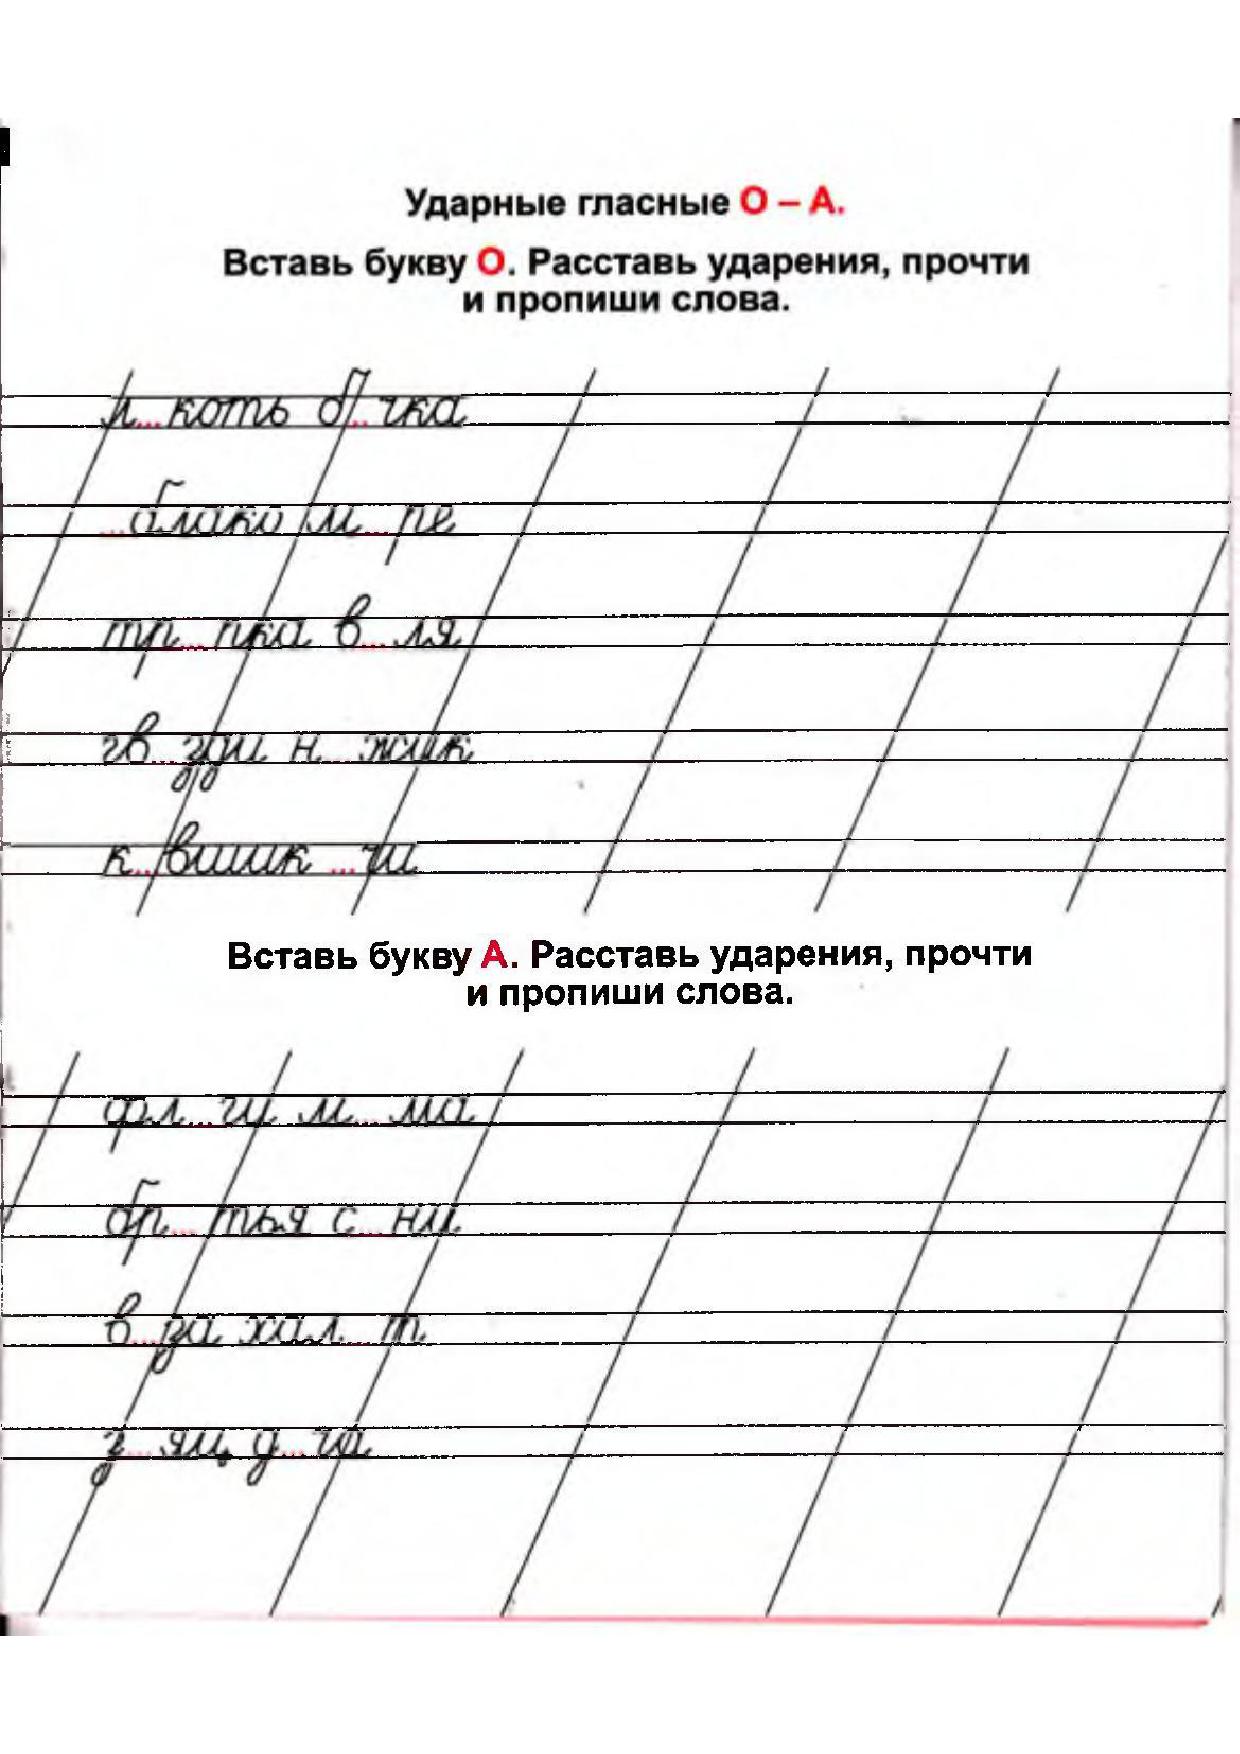 Ударные гласные О – А.
Вставь букву О. Расставь ударения, прочти
и пропиши слова.
л...коть б...чка
...блако м...ре
тр...пка в...ля
гв...зди н...жик
к...вшик ...чи
Вставь букву А. Расставь ударения, прочти
и пропиши слова.
фл...ги м...ма
бр...тья с...ни
в...за хал...т
з...яц д...ча